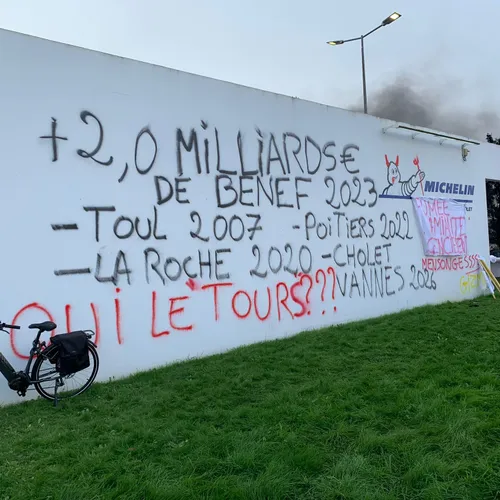 +2,0 MILLIARDS€
DE BENEF 2023
-TOUL 2007 -POITIERS 2022
-LA ROCHE 2020 -CHOLET
VANNES 2026
QUI LE TOURS???
MICHELIN
MENSONGESSSS